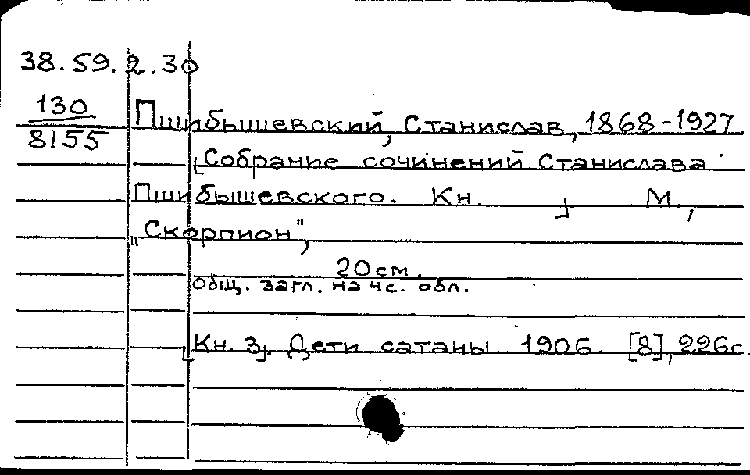 38.59.2.30
130
8155
Пшибышевский, Станислав, 1868-1927
[Собрание сочинений Станислава
Пшибышевского. Кн. ] М.,
"Скорпион",
20см.
Общ. загл. на чс. обл.
[Кн. 3]. Дети сатаны 1906. [8], 226с.